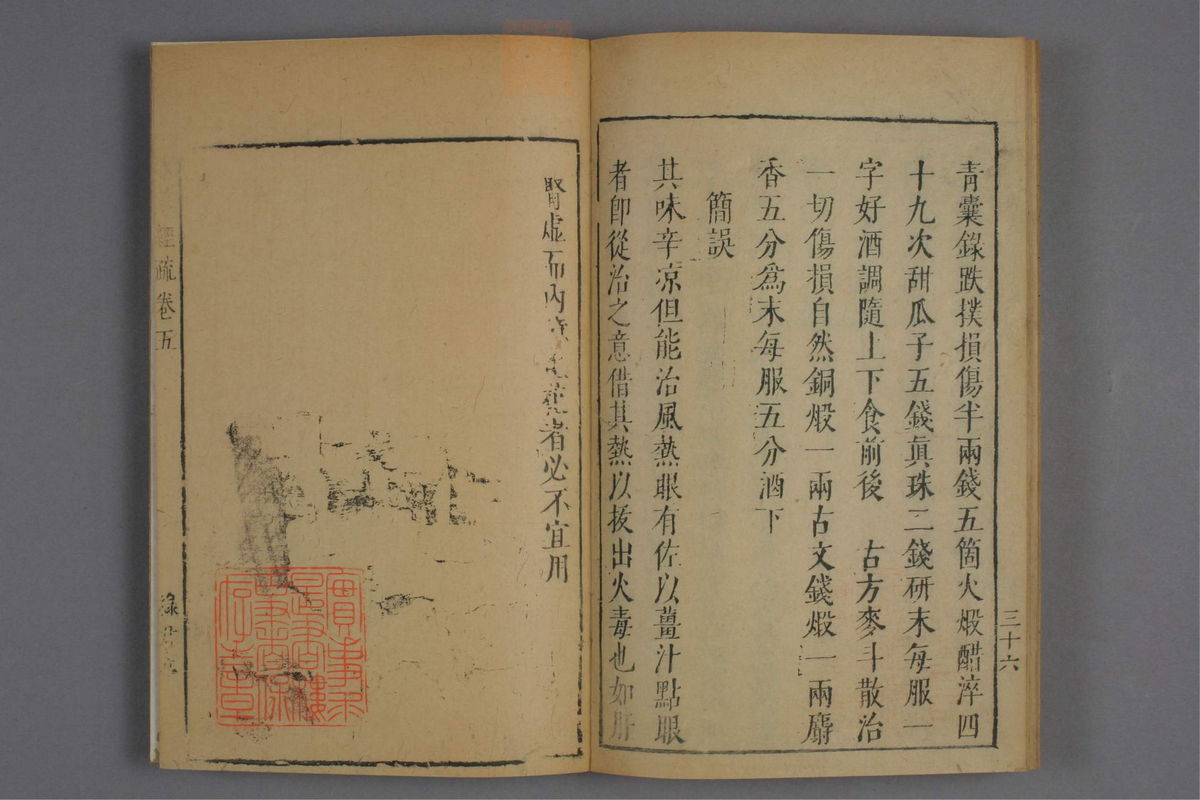 青囊錄跌撲損傷半兩錢五箇火煅醋淬四
十九次甜瓜子五錢眞珠二錢研末每服一
字好酒調隨上下食前後　古方麥斗散治
一切傷損自然銅煅一兩古文錢煅一兩麝
香五分爲末每服五分酒下
簡誤
其味辛凉但能治風熱眼有佐以薑汁點眼
者卽從治之意借其熱以拔出火毒也如肝
三十六
腎虛而內者必不宜用
經疏卷五
綠